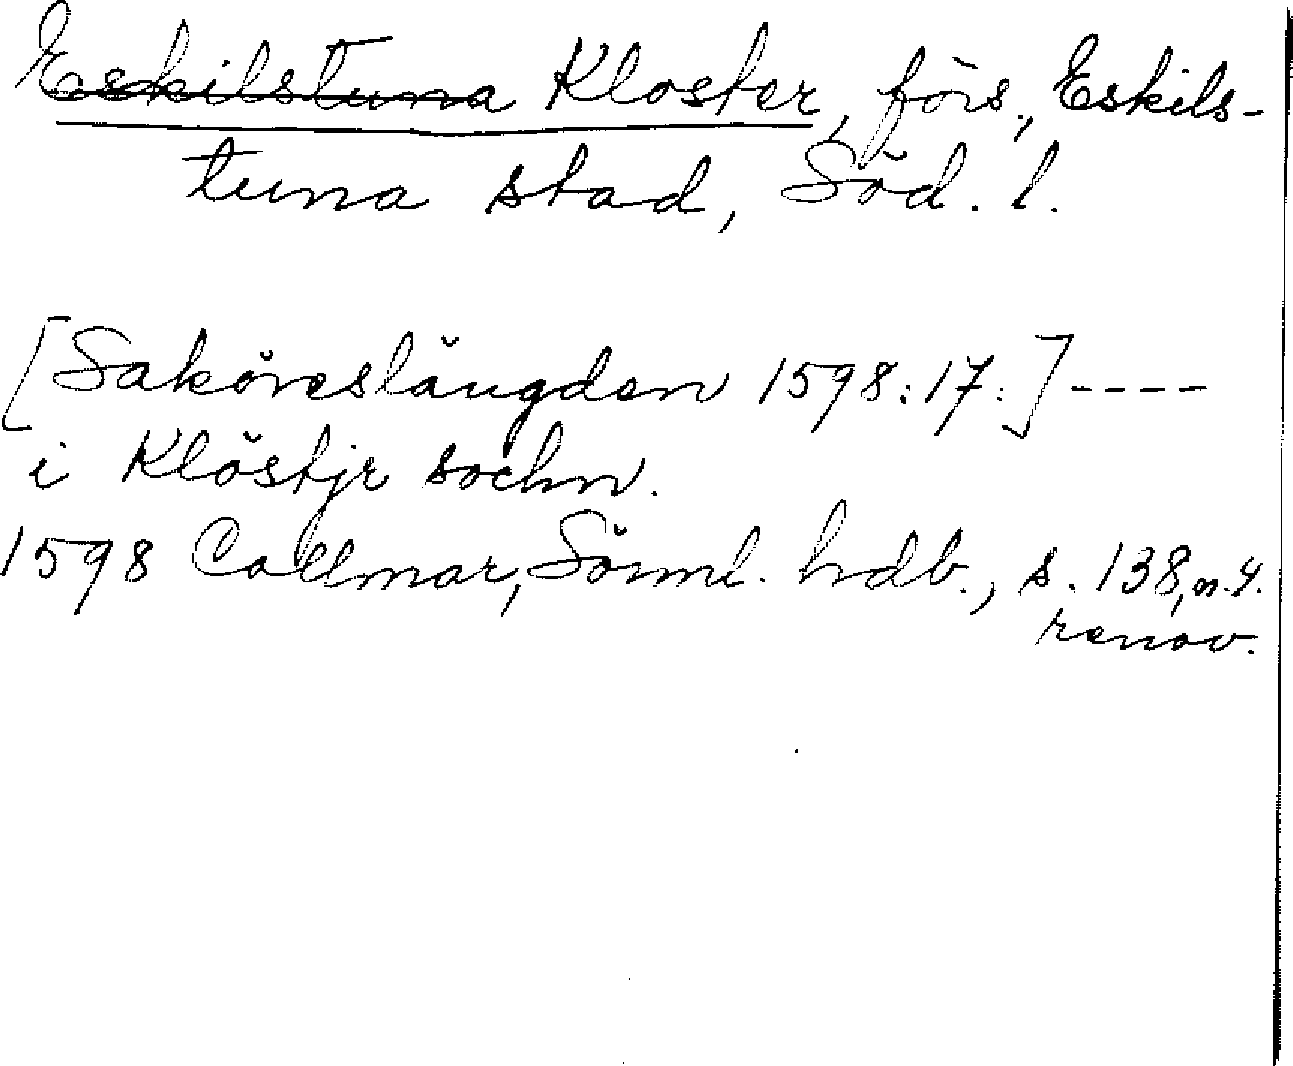 Eskilstuna Kloster, förs., Eskils-
tuna stad, Söd. l.
[Saköreslängden 1598:17:] ----
i Klöstjr sochn.
1598 Collmar, Sörml. hdb., s. 138, n. 4.
renov.